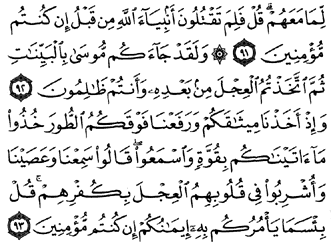 لِّمَا مَعَهُمْ ۗ قُلْ فَلِمَ تَقْتُلُونَ أَنۢبِيَآءَ ٱللَّهِ مِن قَبْلُ إِن كُنتُم
مُّؤْمِنِينَ ٩١ ۞ وَلَقَدْ جَآءَكُم مُّوسَىٰ بِٱلْبَيِّنَٰتِ
ثُمَّ ٱتَّخَذْتُمُ ٱلْعِجْلَ مِنۢ بَعْدِهِۦ وَأَنتُمْ ظَٰلِمُونَ ٩٢
وَإِذْ أَخَذْنَا مِيثَٰقَكُمْ وَرَفَعْنَا فَوْقَكُمُ ٱلطُّورَ خُذُوا۟
مَآ ءَاتَيْنَٰكُم بِقُوَّةٍ وَٱسْمَعُوا۟ ۖ قَالُوا۟ سَمِعْنَا وَعَصَيْنَا
وَأُشْرِبُوا۟ فِى قُلُوبِهِمُ ٱلْعِجْلَ بِكُفْرِهِمْ ۚ قُلْ
بِئْسَمَا يَأْمُرُكُم بِهِۦٓ إِيمَٰنُكُمْ إِن كُنتُم مُّؤْمِنِينَ ٩٣